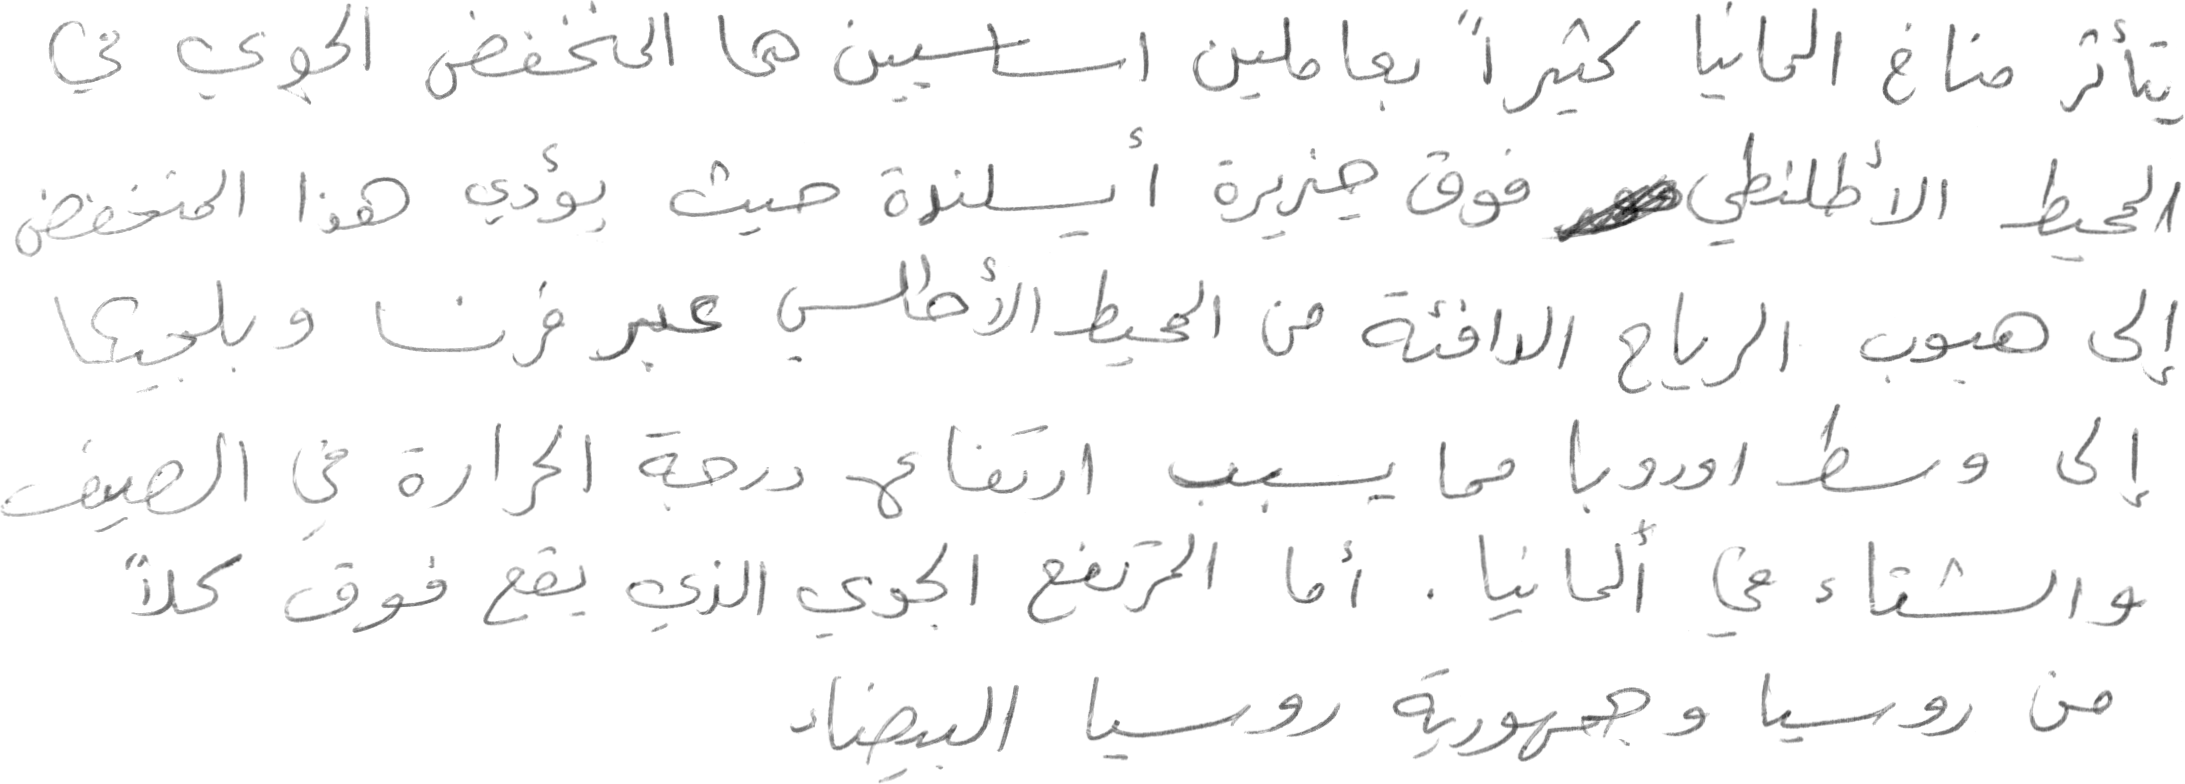 يتأثر مناخ المانيا كثيراً بعاملين اساسيين هما المنخفض الجوي في
المحيط الأطلنطي فوق جزيرة أيسلندة حيث يؤدي هذا المنخفض
إلى هبوب الرياح الدافئة من المحيط الأطلسي عبر فرنسا وبلجيكا
إلى وسط اوروبا مما يسبب ارتفاع درجة الحرارة في الصيف
والشتاء في ألمانيا. أما المرتفع الجوي الذي يقع فوق كلاً
من روسيا وجمهورية روسيا البيضاء